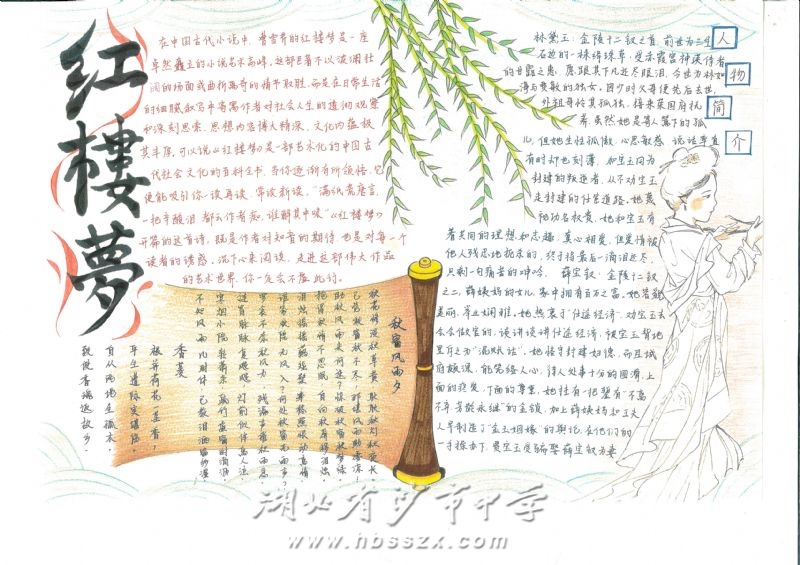 红楼梦
在中国古代小说中，曹雪芹的红楼梦是一座
卓然矗立的小说名字高峰，这部巨著不以波澜壮
阔的场面或曲折离奇的情节取胜，而是在日常生活
的细腻叙写中寄寓作者对社会人生的透彻观察
和深刻思索，思想内容博大精深，文化内蕴极
其丰厚，可以说《红楼梦》是一部艺术化的中国古
代社会文化的百科全书，等你逐渐有所领悟，它
便能吸引你一读再读，常读新读，“满纸荒唐言，
一把辛酸泪 都云作者痴，谁解其中味”《红楼梦》
开篇的这首诗，既是作者对知音的期待，也是对每一个
读者的诱惑，沉下心来阅读，走进这部伟大作品
的艺术世界，你一定会不虚此行。
人物简介
林黛玉：金陵十二钗之首，前世为三生
石边的一株绛珠草，受赤霞宫神瑛侍者
的甘露之惠，愿跟其下凡还尽眼泪，今世为林如
海与贾敏的独女。因少时父母便先后去世，
外祖母怜其孤独，接来荣国府抚
养，虽然她是寄人篱下的孤
儿，但她生性孤傲，心思敏感，说话率直
有时却也刻薄，和宝玉同为
封建的叛逆者，从不劝宝玉
走封建的仕宦道路，她蔑
视功名权贵，她和宝玉有
着共同的理想和志趣，真心相爱，但爱情被
他人残忍地扼杀的，终于将最后一滴泪还尽，
只剩一句痛苦的呻吟。 薛宝钗：金陵十二钗
之二，薛姨妈的女儿，家中拥有百万之富。她容貌
美丽，举止娴雅，她热衷于“仕途经济”，对宝玉去
会会做官的，谈讲谈讲仕途经济，被宝玉背地
里斥之为“混账话”。她恪守封建妇德，而且城
府颇深，能笼络人心，
上面的疼爱，下面的尊重，她挂有一把錾有“不离
不弃芳龄永继”的金锁，
人早制造了“金玉姻缘”的舆论，在他们的
一手操办下，贾宝玉受骗娶薛宝钗为妻
秋窗风雨夕
秋花惨淡秋草黄，耿耿秋灯秋夜长，
已觉秋窗秋不尽，那堪风雨助凄凉！
助秋风雨来何速？惊破秋窗秋梦绿，
抱得秋情不忍眠，自向秋屏移泪烛。
泪烛摇摇爇短檠，牵愁照恨动离情，
谁家秋院无风入？何处秋窗无雨声？
罗衾不奈秋风力，残漏声催秋雨急，
连宵脉脉复飕飕，灯前似伴离人泣，
寒烟小院转萧条，疏竹虚窗时滴沥，
不知风雨几时休，已教泪洒窗纱湿！
香菱
根并荷花一茎香，
平生遭际实堪伤。
自从两地生孤木，
致使香魂返故乡。
湖北省沙市中学
www.hbsszx.com